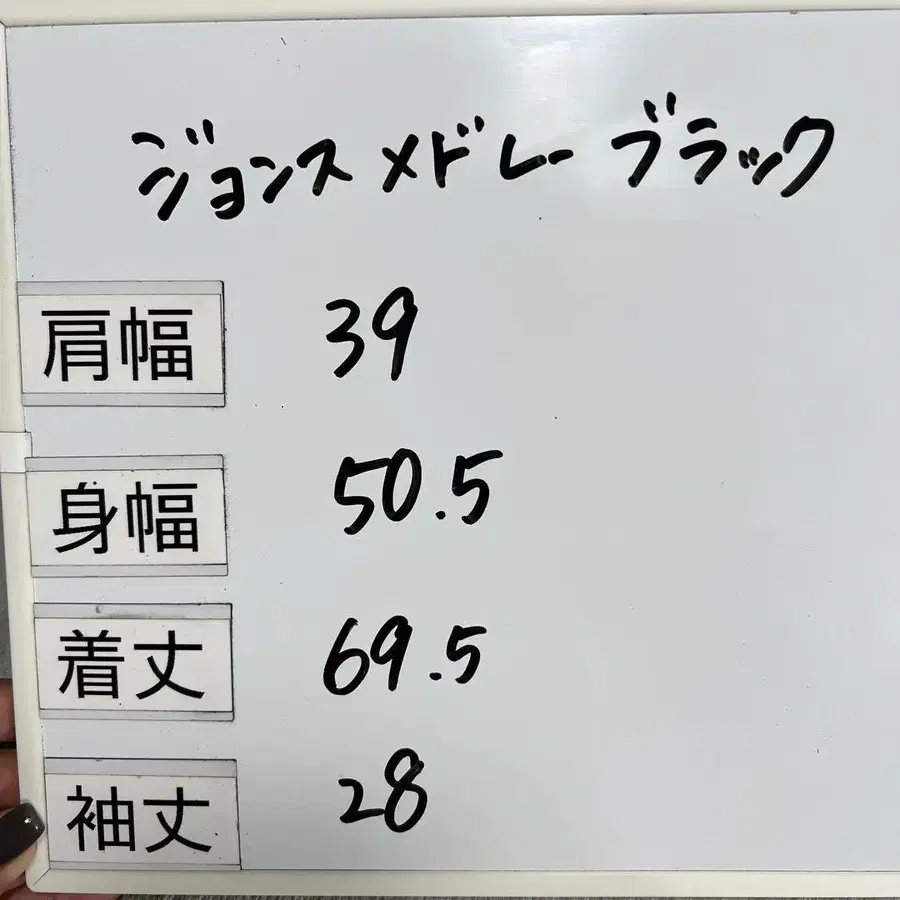 ジョンス メドレー ブラック
肩幅 39
身幅 50.5
着丈 69.5
袖丈 28